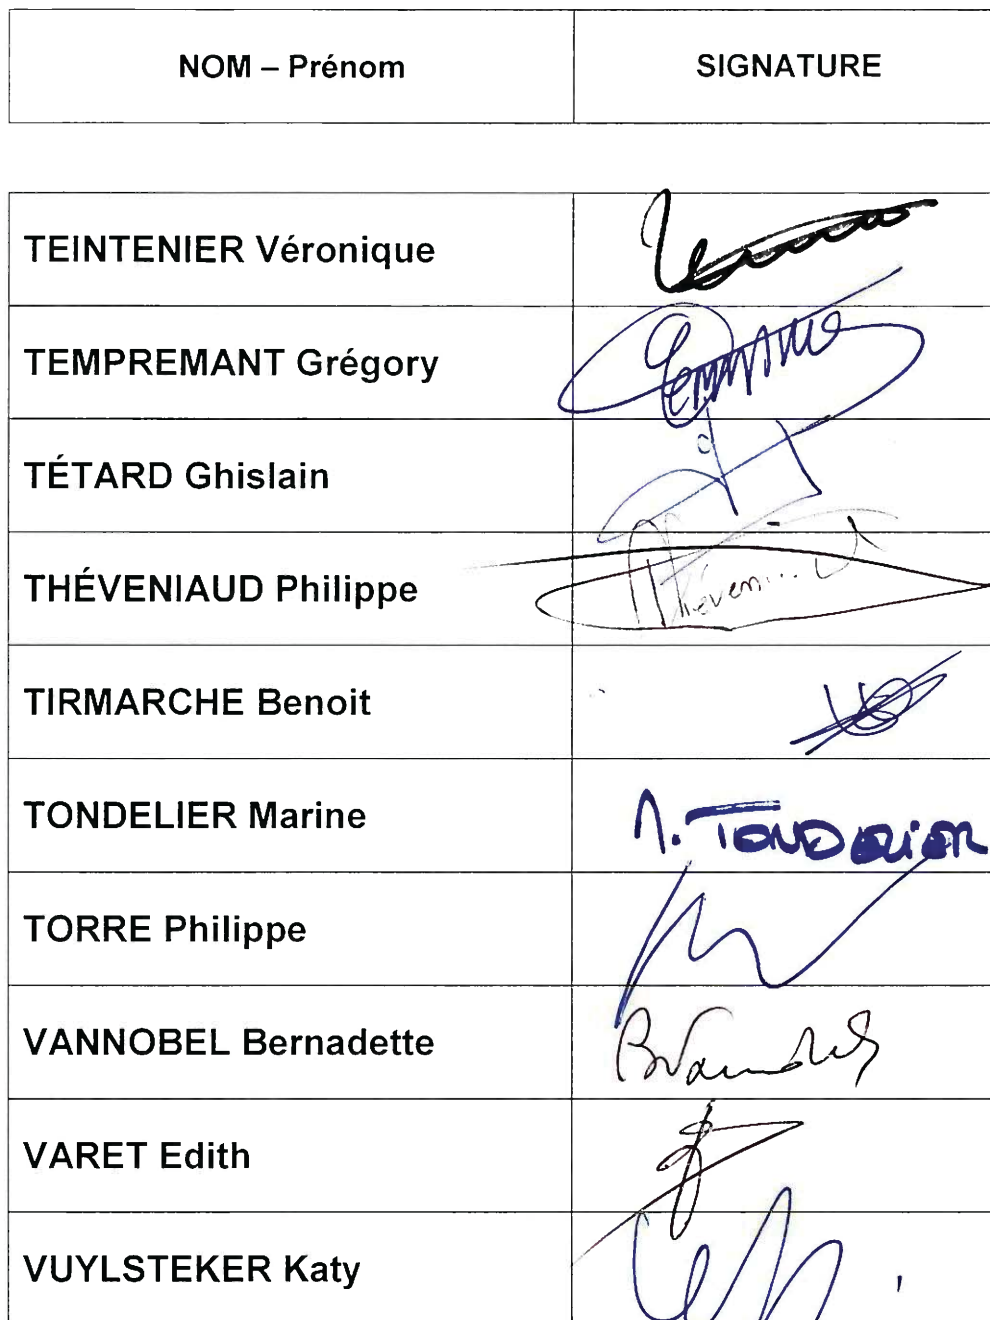 NOM – Prénom SIGNATURE
TEINTENIER Véronique
TEMPREMANT Grégory
TÉTARD Ghislain
THÉVENIAUD Philippe
TIRMARCHE Benoit
TONDELIER Marine M. TONDELIER
TORRE Philippe
VANNOBEL Bernadette
VARET Edith
VUYLSTEKER Katy